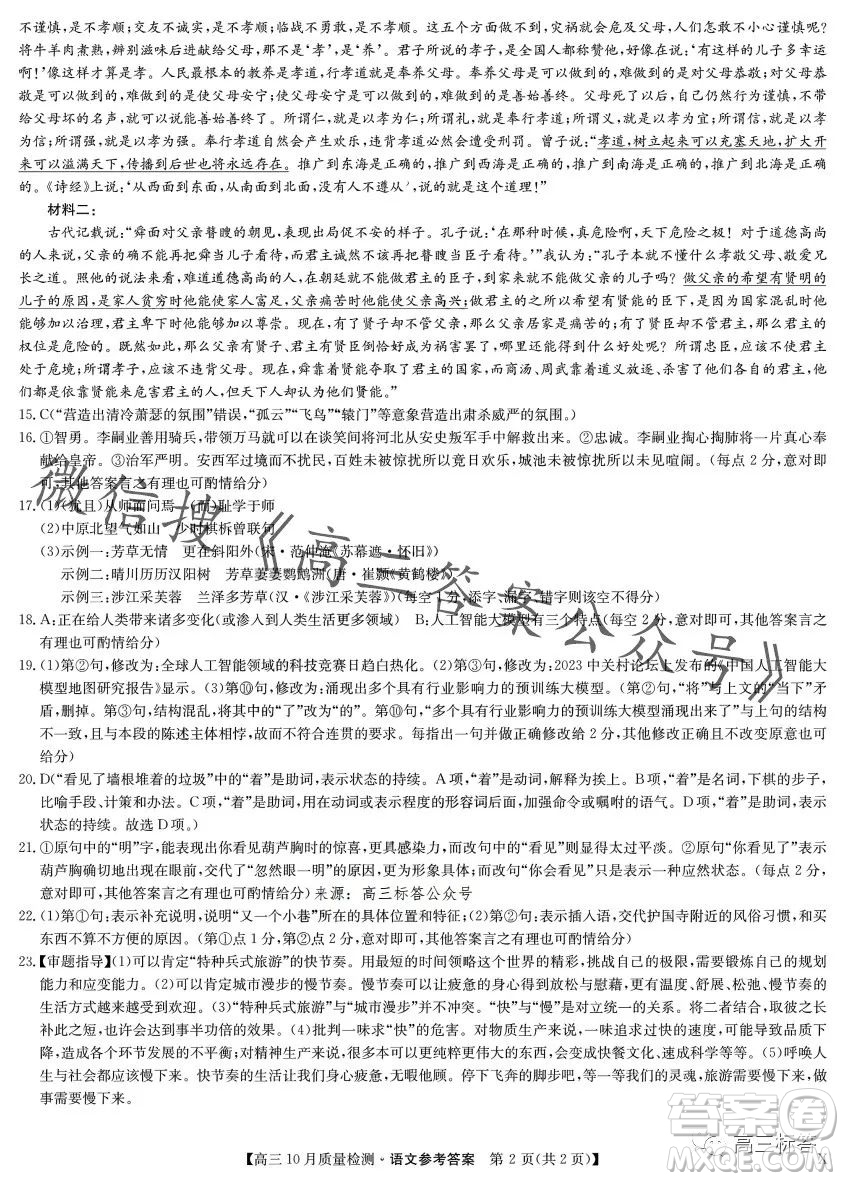 不谨慎，是不孝顺；交友不诚实，是不孝顺；临战不勇敢，是不孝顺。这五个方面做不到，灾祸就会危及父母，人们怎么敢不小心谨慎呢？
将牛羊肉煮熟，辨别滋味后进献给父母，那不是‘孝’，是‘养’。君子所说的孝子，是全国人都称赞他，好像在说：‘有这样的儿子多幸运
啊！’像这样才算是孝。人民最根本的教养是孝道，行孝道就是奉养父母。奉养父母是可以做到的，难做到的是对父母恭敬；对父母恭
敬是可以做到的，难做到的是使父母安宁；使父母安宁是可以做到的，难做到的是善始善终。父母死了以后，自己仍然行为谨慎，不带
给父母坏的名声，就可以说是善始善终。所谓仁，以孝为仁；所谓礼，就是奉行孝道；所谓义，就是以孝为宜；所谓信，就是以孝
为信；所谓强，就是以孝为强。奉行孝道会产生欢乐，违背孝道必然会遭受刑罚。曾子说：“孝道，树立起来可以充塞天地，扩大开
来可以溢满天下，传播到后世也将永远存在。推广到东海是正确的，推广到西海是正确的，推广到南海是正确的，推广到北海是正确
的。《诗经》上说：‘从西面到东面，从南面到北面，没有人不遵从’，说的就是这个道理！”
材料二：
古代记载说：“舜面对父亲瞽瞍的朝见，表现出局促不安的样子。孔子说：‘在那种时候，真危险啊，天下危险极了！对于道德高尚
的人来说，父亲的确不能再把舜当儿子看待，而君主诚然不能再把瞽瞍当臣子看待。’”我认为：“孔子本就不懂什么孝敬父母、敬爱兄
长之道。照他的说法来看，难道道德高尚的人，在朝廷就不能做君主的臣子，到家来就不能做父亲的儿子吗？做父亲的希望有贤明的
儿子的原因，是家人贫穷时他能使家人富足，父亲痛苦时他能使父亲高兴；做君主的之所以希望有贤能的臣下，是因为国家混乱时他
能够加以治理，君主卑下时他能够加以尊崇。现在，有了贤子却不管父亲，那么父亲居家是痛苦的；有了贤臣却不管君主，那么君主的
权位是危险的。既然这样，那么父亲有贤子、君主有贤臣倒恰好成为祸害罢了，哪里还能得到什么好处呢？所谓忠臣，应该不使君主
处于危境；所谓孝子，应该不违背父母。现在舜靠贤能夺取了君主的国家，而商汤、周武靠着道义流放、杀害了自己的君主，他
们都是依靠贤能来危害君主的人，但天下人却认为他们贤能。”
15. C(“营造出清冷萧瑟的氛围”错误，“孤云”“飞鸟”“辕门”等意象营造出肃杀威严的氛围。)
16. ①智勇。李嗣业善用骑兵，带领万马就可以在谈笑间将河北从安史叛军手中解救出来。②忠诚。李嗣业掏心掏肺将一片真心奉
献给皇帝。③治军严明。安西军过境而不扰民，百姓未被惊扰所以竟日欢乐，城池未被惊扰所以未见喧闹。(每点 2 分，意对即
可；其他答案言之有理也可酌情给分)
17. (1)(犹且)从师而问焉 (而)耻学于师
(2)中原北望气如山 少时棋柝曾联句
(3)示例一：芳草无情 更在斜阳外(宋·范仲淹《苏幕遮·怀旧》)
示例二：晴川历历汉阳树 芳草萋萋鹦鹉洲(唐·崔颢《黄鹤楼》)
示例三：涉江采芙蓉 兰泽多芳草(汉·《涉江采芙蓉》)(每空 1 分，添字、漏字、错字则该空不得分)
18. A：正在给人类带来诸多变化(或渗入到人类生活更多领域) B：人工智能大模型有三个特点(每空 2 分，意对即可；其他答案言之
有理也可酌情给分)
19. (1)第①句，修改为：全球人工智能领域的科技竞赛日趋白热化。(2)第②句，修改为：2023 中关村论坛上发布的《中国人工智能大
模型地图研究报告》显示。(3)第⑩句，修改为：涌现出多个具有行业影响力的预训练大模型。(第②句，“将”与上文的“当下”矛
盾，删掉。第③句，结构混乱，将其中的“了”改为“的”。第⑩句，“多个具有行业影响力的预训练大模型涌现出来了”与上句的结构
不一致，且与本段的陈述主体相悖，故一并修改。每指出一处并正确修改给 2 分，其他修改言之有理且不改变原意也可
给分)
20. D(“看见了墙根堆着的垃圾”中的“着”是助词，表示状态的持续。A 项，“着”是动词，解释为挨上。B 项，“着”是名词，下棋的步子，
比喻手段、计策和办法。C 项，“着”是助词，用在动词或表示程度的形容词后面，加强命令或嘱咐的语气。D 项，“着”是助词，表示
状态的持续。故选 D 项。)
21. ①原句中的“明”字，能表现出你看见葫芦胸时的惊喜，更具感染力，而改句中的“看见”则显得太过平淡。②原句“你看见了”表示
葫芦胸确切地出现在眼前，交代了“忽然眼一明”的原因，更为生动形象，而改句“会看见”只是表示一种应然状态。(每点 2 分，
意对即可，其他答案言之有理也可酌情给分)来源：高三标答公众号
22. (1)第①句：表示补充说明，说明“又一个小巷”所在的具体位置和特征；(2)第②句：表示插入语，交代护国寺附近的风俗习惯，和买
东西不算不方便的原因。(第①点 1 分，第②点 2 分，意对即可；其他答案言之有理也可酌情给分)
23. 【审题指导】(1)可以肯定“特种兵式旅游”的快节奏。用最短的时间领略这个世界的精彩，挑战自我的极限，需要锻炼自己的规划
能力和应变能力。(2)可以肯定城市漫步的慢节奏。慢节奏可以让疲惫的身心得到放松与慰藉，更有温度、舒展、松弛、慢节奏的
生活方式越来越受到欢迎。(3)“特种兵式旅游”与“城市漫步”并不冲突。“快”与“慢”是对立统一的关系。将二者结合，取彼之长
补此之短，也许会达到事半功倍的效果。(4)批判一味求“快”的危害。对物质生产来说，一味追求过快的速度，可能导致品质下
降，造成各个环节发展的不平衡；对文化生产来说，一味求快，以更快的速度生产原本更纯粹更伟大的东西，会变成快餐文化、速成科学等等。(5)呼唤人
生与社会都应该慢下来。快节奏的生活让人们身心疲惫，无暇观照心灵。停下飞奔的脚步吧，等一等我们的灵魂，旅游需要慢下来，做
事需要慢下来。
【高三 10 月质量检测·语文参考答案 第 2 页(共 2 页)】
微信搜《高三答案公众号》
高三标答